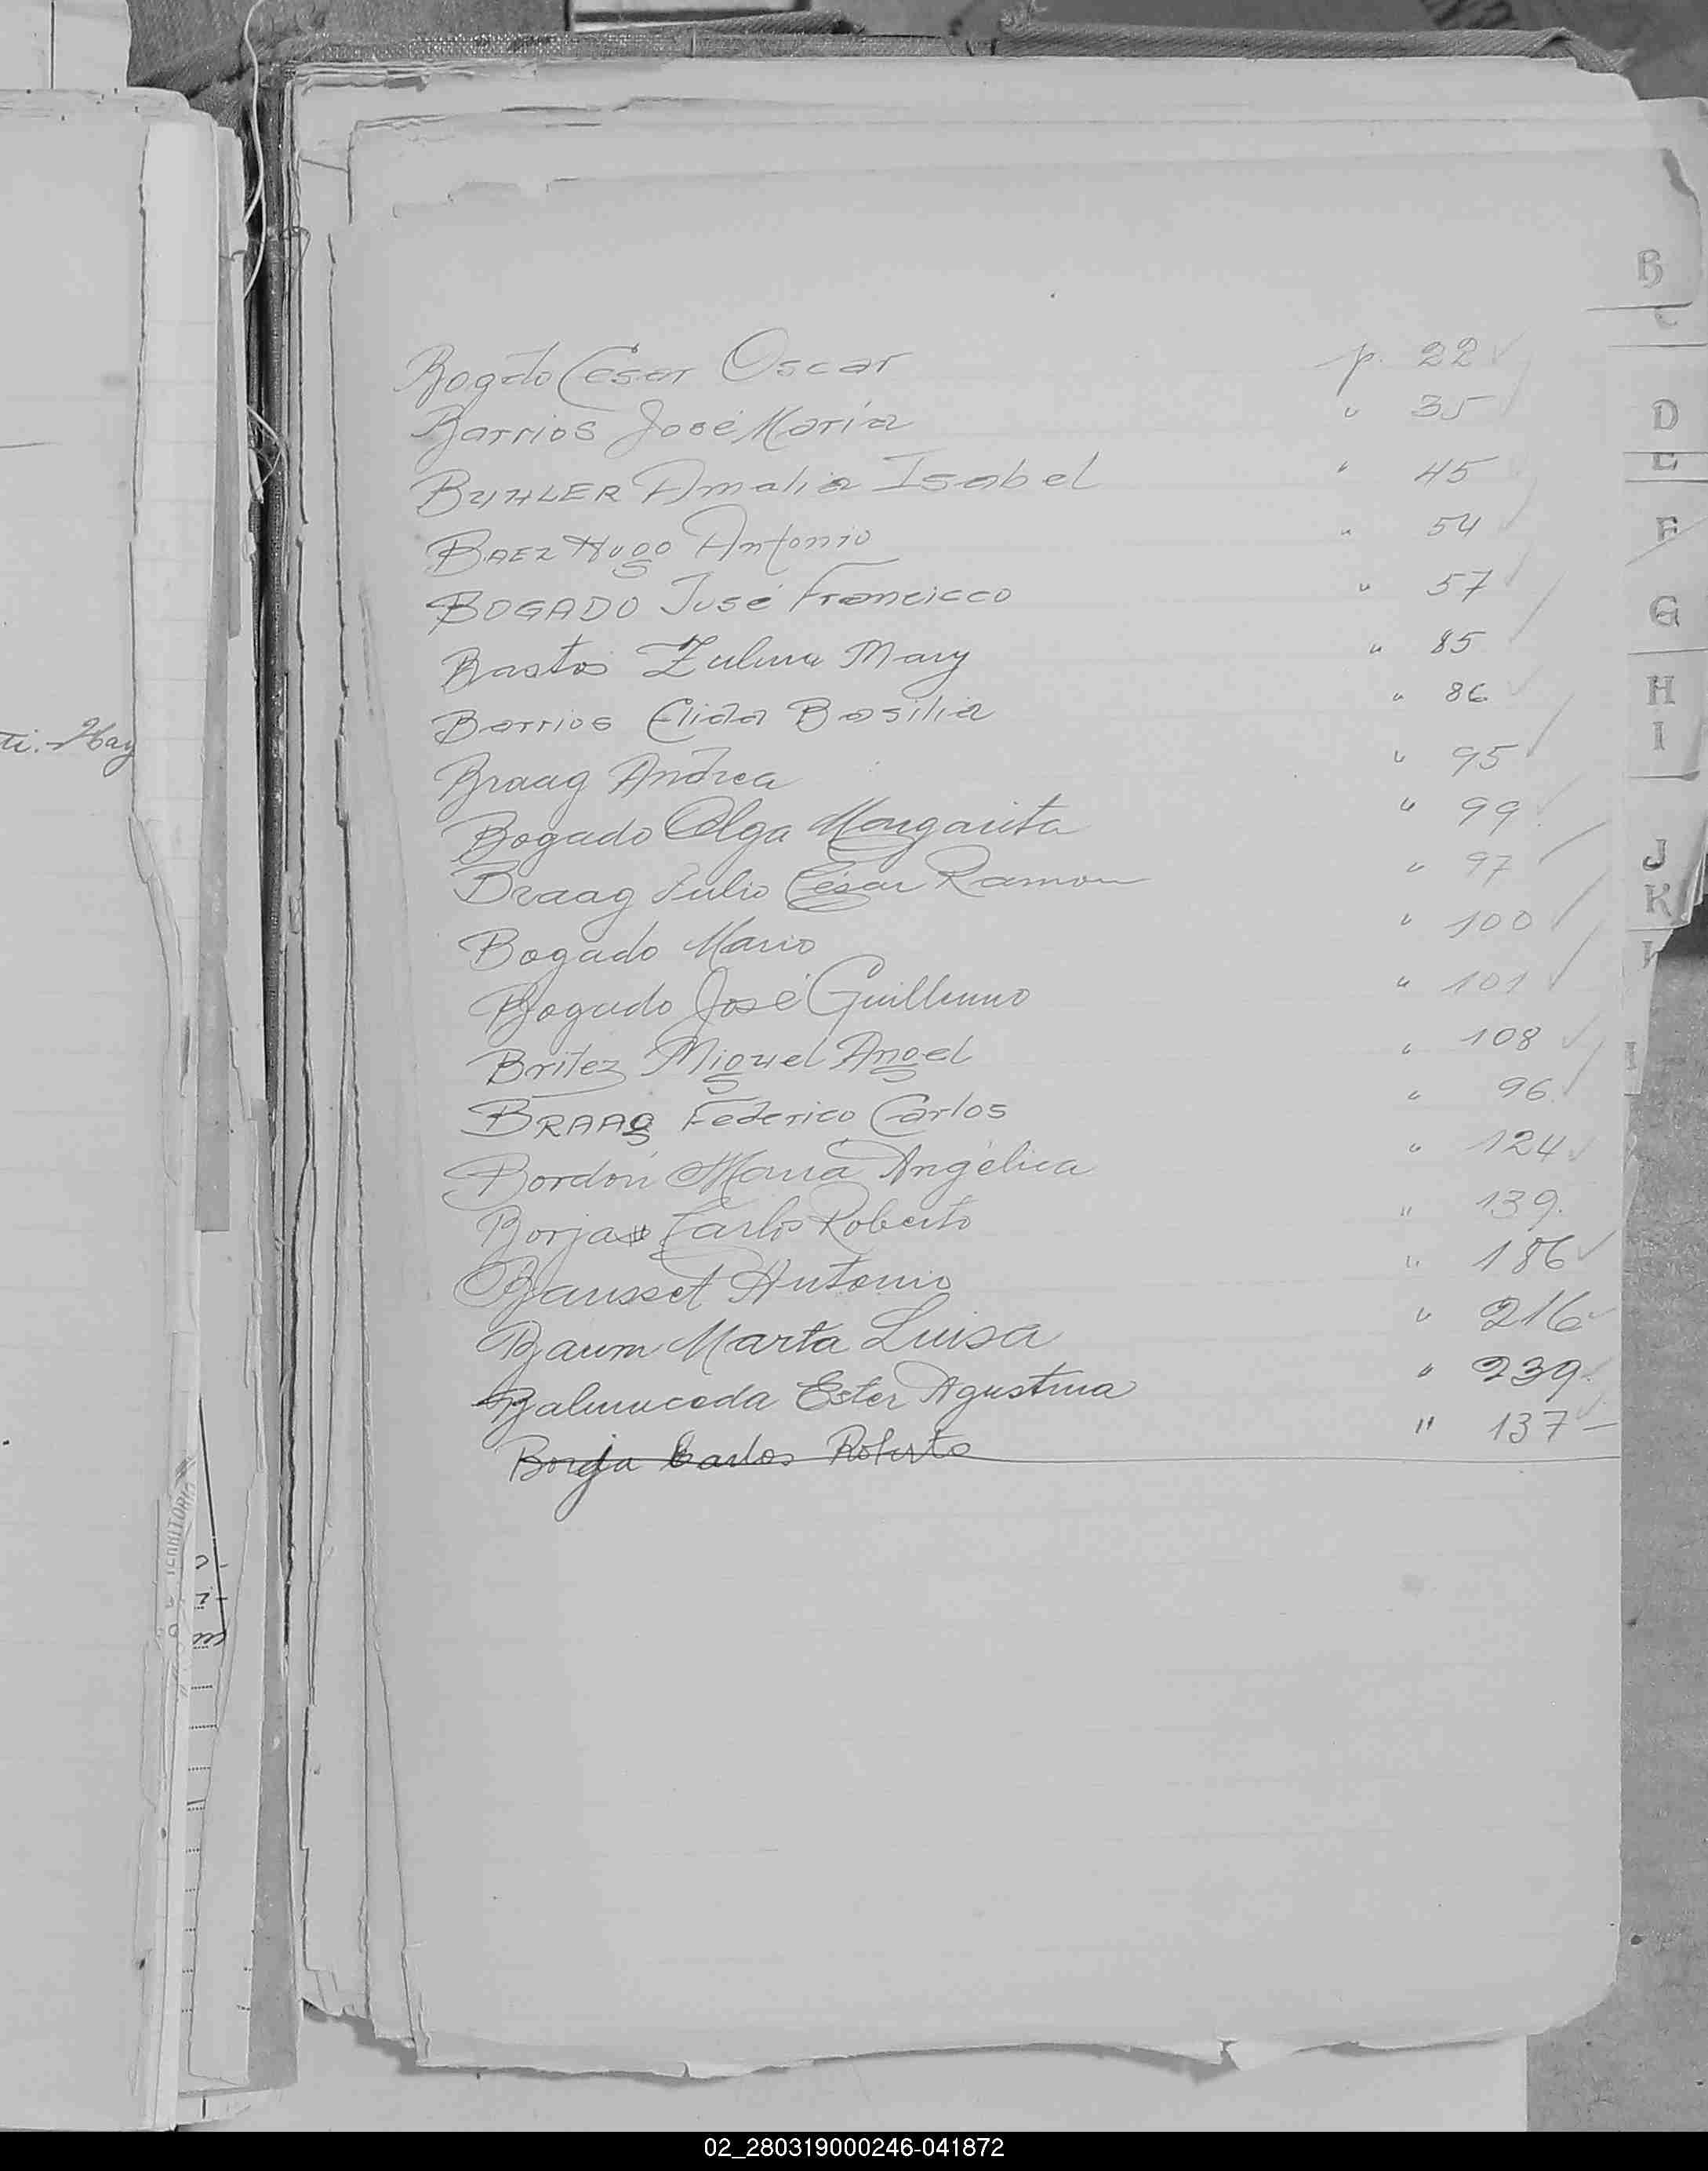 B
Bogdo Cesar Oscar p. 22
Barrios José Maria " 35
D
E
BUHLER Amalia Isabel " 45
BAEZ Hugo Antonio " 54
F
BOGADO José Francicco " 57
G
Bastos Zulma Mary " 85
Barrios Elida Basilia " 86
H
ti. Hay
I
Braag Andrea " 95
Bogado Olga Margarita " 99
J
Braag Julio César Ramon " 97
K
Bogado Mario " 100
Bogado José Guillermo " 101
Britez Miguel Angel " 108
BRAAg Federico Carlos " 96
Bordón María Angélica " 124
Borja Carlos Roberto " 139.
Bausset Antonio " 186
Baum Marta Luisa " 216
Balmaceda Ester Agustina " 239
Borja Carlos Roberto " 137
02_280319000246-041872